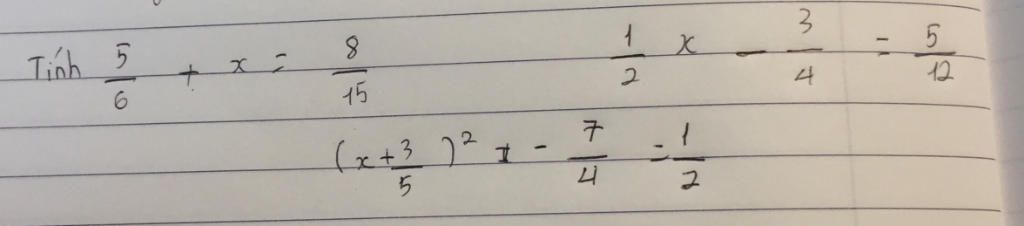 Tính 5/6 + x = 8/15    1/2 x - 3/4 = 5/12
(x + 3/5)² - 7/4 = 1/2